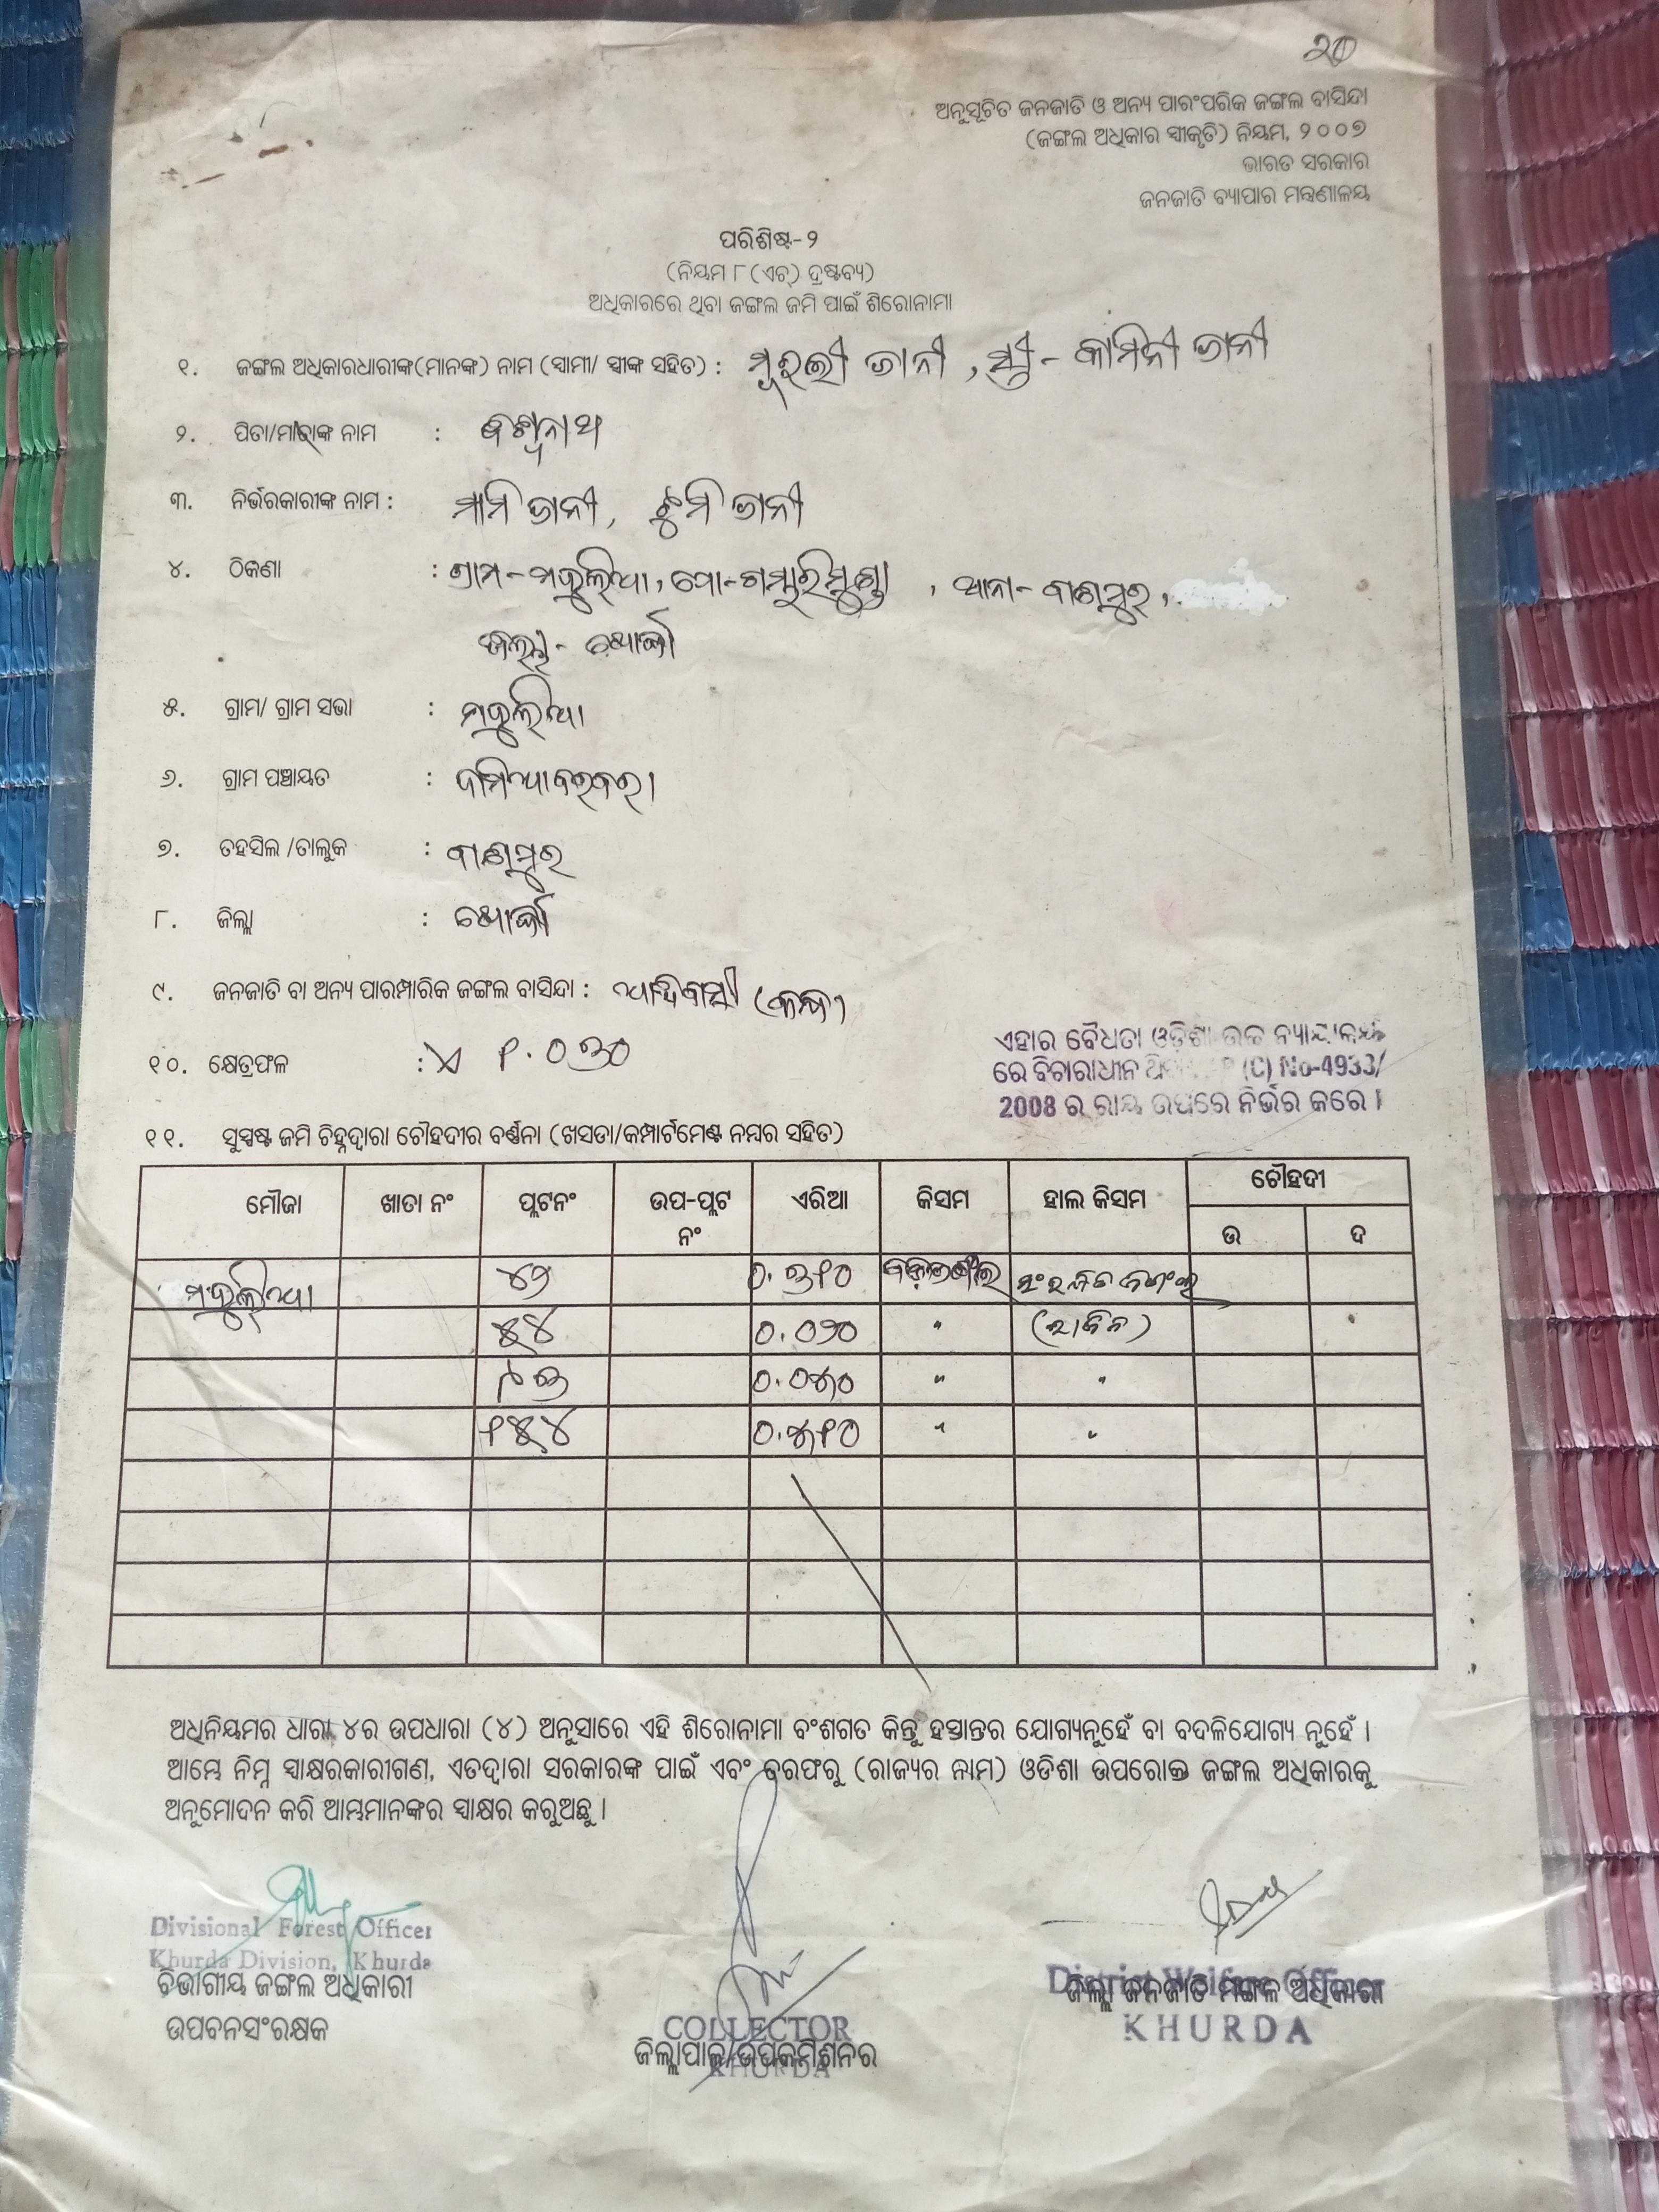 ୨୦
ଅନୁସୂଚିତ ଜନଜାତି ଓ ଅନ୍ୟ ପାରଂପରିକ ଜଙ୍ଗଲ ବାସିନ୍ଦା
(ଜଙ୍ଗଲ ଅଧିକାର ସ୍ୱୀକୃତି) ନିୟମ, ୨୦୦୭
ଭାରତ ସରକାର
ଜନଜାତି ବ୍ୟାପାର ମନ୍ତ୍ରଣାଳୟ
ପରିଶିଷ୍ଟ-୨
(ନିୟମ ୮(ଏଚ୍) ଦ୍ରଷ୍ଟବ୍ୟ)
ଅଧିକାରରେ ଥିବା ଜଙ୍ଗଲ ଜମି ପାଇଁ ଶିରୋନାମା
୧. ଜଙ୍ଗଲ ଅଧିକାରଧାରୀଙ୍କ(ମାନଙ୍କ) ନାମ (ସ୍ୱାମୀ/ ସ୍ତ୍ରୀଙ୍କ ସହିତ) : ମୂରଲୀ ଭାନୀ, ସ୍ତ୍ରୀ - କାମିନୀ ଭାନୀ
୨. ପିତା/ମାତାଙ୍କ ନାମ :
୩. ନିର୍ଭରକାରୀଙ୍କ ନାମ : ମାମି ଭାନୀ, ଟୁମି ଭାନୀ
୪. ଠିକଣା : ଗ୍ରାମ-ମହୁଲିଆ, ପୋ-ଗମ୍ଭାରିମୁଣ୍ଡା, ଥାନା- ବାଣପୁର,
ଜିଲ୍ଲା - ଖୋର୍ଦ୍ଧା
୫. ଗ୍ରାମ/ ଗ୍ରାମ ସଭା : ମହୁଲିଆ
୬. ଗ୍ରାମ ପଞ୍ଚାୟତ :
୭. ତହସିଲ /ତାଲୁକ : ବାଣପୁର
୮. ଜିଲ୍ଲା : ଖୋର୍ଦ୍ଧା
୯. ଜନଜାତି ବା ଅନ୍ୟ ପାରମ୍ପାରିକ ଜଙ୍ଗଲ ବାସିନ୍ଦା : ଆଦିବାସୀ (କନ୍ଧ)
୧୦. କ୍ଷେତ୍ରଫଳ : ଏ ୧.୦୩୦
ଏହାର ବୈଧତା ଓଡ଼ିଶା ଉଚ୍ଚ ନ୍ୟାୟାଳୟ
ରେ ବିଚାରାଧୀନ (C) No-4933/
2008 ର ରାୟ ଉପରେ ନିର୍ଭର କରେ ।
୧୧. ସୁସ୍ପଷ୍ଟ ଜମି ଚିହ୍ନଦ୍ୱାରା ଚୌହଦୀର ବର୍ଣ୍ଣନା (ଖସଡା/କମ୍ପାର୍ଟମେଣ୍ଟ ନମ୍ବର ସହିତ)
ମୌଜା ଖାତା ନଂ ପ୍ଲଟନଂ ଉପ-ପ୍ଲଟ ନଂ ଏରିଆ କିସମ ହାଲ କିସମ ଚୌହଦୀ
ଉ ଦ
ମହୁଲିଆ ୪୨ ୦.୩୧୦ ସଂରକ୍ଷିତ ଜଙ୍ଗଲ
୫୪ ୦.୦୨୦ "
୯୩ ୦.୦୫୦ " "
୧୫୪ " "
ଅଧିନିୟମର ଧାରା ୪ର ଉପଧାରା (୪) ଅନୁସାରେ ଏହି ଶିରୋନାମା ବଂଶଗତ କିନ୍ତୁ ହସ୍ତାନ୍ତର ଯୋଗ୍ୟନୁହେଁ ବା ବଦଳିଯୋଗ୍ୟ ନୁହେଁ ।
ଆମ୍ଭେ ନିମ୍ନ ସ୍ୱାକ୍ଷରକାରୀଗଣ, ଏତଦ୍ୱାରା ସରକାରଙ୍କ ପାଇଁ ଏବଂ ତରଫରୁ (ରାଜ୍ୟର ନାମ) ଓଡିଶା ଉପରୋକ୍ତ ଜଙ୍ଗଲ ଅଧିକାରକୁ
ଅନୁମୋଦନ କରି ଆମ୍ଭମାନଙ୍କର ସ୍ୱାକ୍ଷର କରୁଅଛୁ ।
Divisional Forest Officer
Khurda Division, Khurda
ବିଭାଗୀୟ ଜଙ୍ଗଲ ଅଧିକାରୀ
ଉପବନସଂରକ୍ଷକ
COLLECTOR
ଜିଲ୍ଲାପାଳ/ଉପକମିଶନର
KHURDA
District Welfare Officer
ଜିଲ୍ଲା ଜନଜାତି ମଙ୍ଗଳ ଅଧିକାରୀ
KHURDA